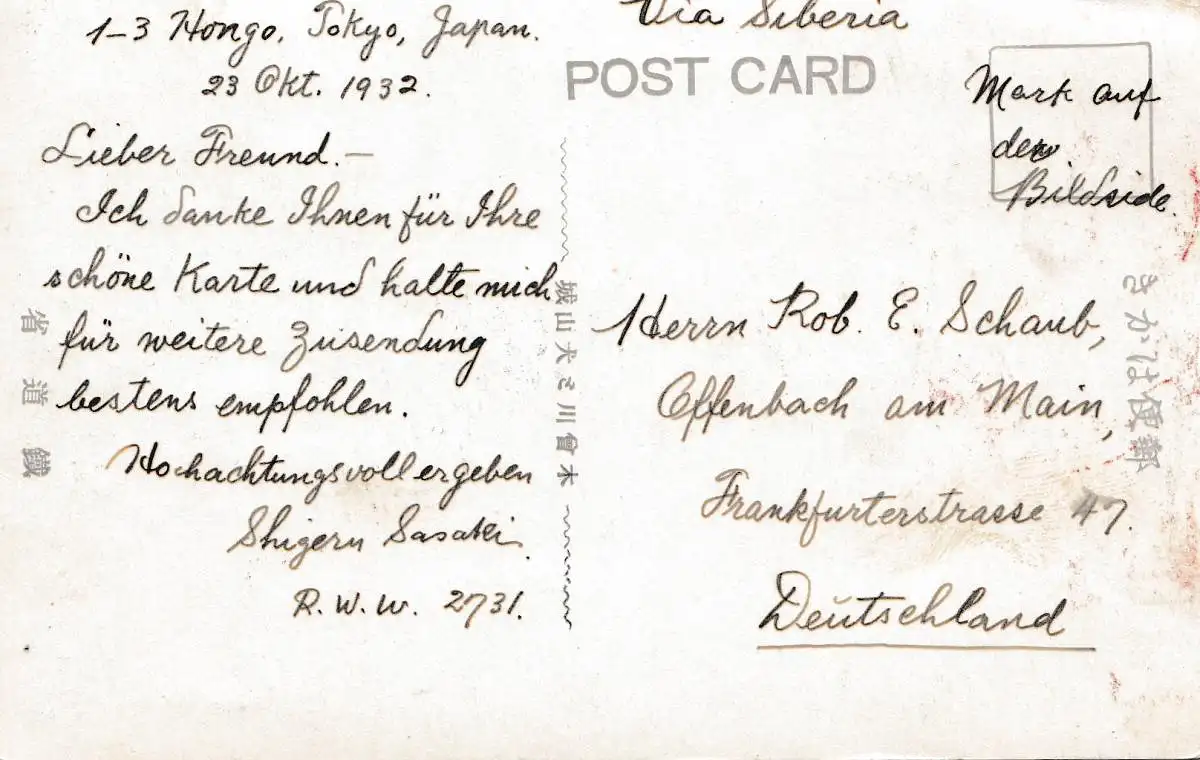 1-3 Hongo, Tokyo, Japan.
23 Okt. 1932.
Lieber Freund.—
Ich danke Ihnen für Ihre
schöne Karte und halte mich
für weitere Zusendung
bestens empfohlen.
Hochachtungsvoll ergeben
Shigeru Sasaki
R.W.W. 2731.
Via Siberia
POST CARD
Mark auf
der
Bildside.
Herrn Rob. E. Schaub,
Offenbach am Main,
Frankfurterstrasse 47.
Deutschland
郵便はかき
鐵道省